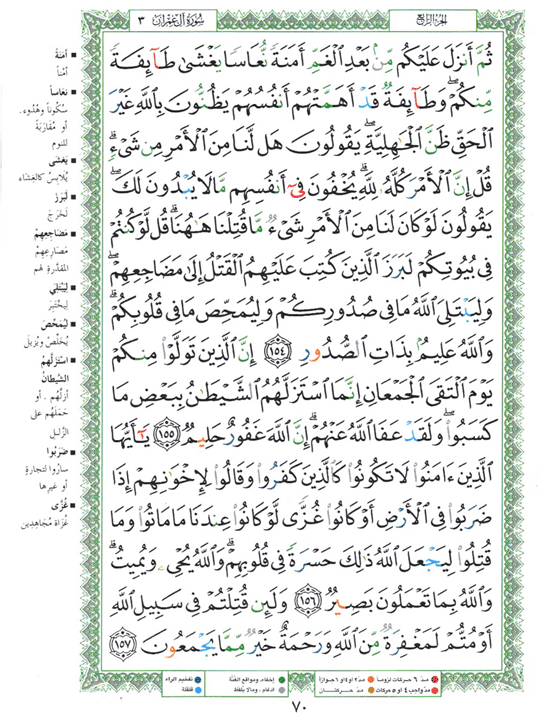 الجزء الرابع
سورة آل عمران ٣
ثُمَّ أَنزَلَ عَلَيْكُم مِّنۢ بَعْدِ ٱلْغَمِّ أَمَنَةً نُّعَاسًا يَغْشَىٰ طَآئِفَةً
مِّنكُمْ ۖ وَطَآئِفَةٌ قَدْ أَهَمَّتْهُمْ أَنفُسُهُمْ يَظُنُّونَ بِٱللَّهِ غَيْرَ
ٱلْحَقِّ ظَنَّ ٱلْجَٰهِلِيَّةِ ۖ يَقُولُونَ هَل لَّنَا مِنَ ٱلْأَمْرِ مِن شَىْءٍ ۗ
قُلْ إِنَّ ٱلْأَمْرَ كُلَّهُۥ لِلَّهِ ۗ يُخْفُونَ فِىٓ أَنفُسِهِم مَّا لَا يُبْدُونَ لَكَ ۖ
يَقُولُونَ لَوْ كَانَ لَنَا مِنَ ٱلْأَمْرِ شَىْءٌ مَّا قُتِلْنَا هَٰهُنَا ۗ قُل لَّوْ كُنتُمْ
فِى بُيُوتِكُمْ لَبَرَزَ ٱلَّذِينَ كُتِبَ عَلَيْهِمُ ٱلْقَتْلُ إِلَىٰ مَضَاجِعِهِمْ ۖ
وَلِيَبْتَلِىَ ٱللَّهُ مَا فِى صُدُورِكُمْ وَلِيُمَحِّصَ مَا فِى قُلُوبِكُمْ ۗ
وَٱللَّهُ عَلِيمٌۢ بِذَاتِ ٱلصُّدُورِ ١٥٤ إِنَّ ٱلَّذِينَ تَوَلَّوْا۟ مِنكُمْ
يَوْمَ ٱلْتَقَى ٱلْجَمْعَانِ إِنَّمَا ٱسْتَزَلَّهُمُ ٱلشَّيْطَٰنُ بِبَعْضِ مَا
كَسَبُوا۟ ۖ وَلَقَدْ عَفَا ٱللَّهُ عَنْهُمْ ۗ إِنَّ ٱللَّهَ غَفُورٌ حَلِيمٌ ١٥٥ يَٰٓأَيُّهَا
ٱلَّذِينَ ءَامَنُوا۟ لَا تَكُونُوا۟ كَٱلَّذِينَ كَفَرُوا۟ وَقَالُوا۟ لِإِخْوَٰنِهِمْ إِذَا
ضَرَبُوا۟ فِى ٱلْأَرْضِ أَوْ كَانُوا۟ غُزًّى لَّوْ كَانُوا۟ عِندَنَا مَا مَاتُوا۟ وَمَا
قُتِلُوا۟ لِيَجْعَلَ ٱللَّهُ ذَٰلِكَ حَسْرَةً فِى قُلُوبِهِمْ ۗ وَٱللَّهُ يُحْىِۦ وَيُمِيتُ ۗ
وَٱللَّهُ بِمَا تَعْمَلُونَ بَصِيرٌ ١٥٦ وَلَئِن قُتِلْتُمْ فِى سَبِيلِ ٱللَّهِ
أَوْ مُتُّمْ لَمَغْفِرَةٌ مِّنَ ٱللَّهِ وَرَحْمَةٌ خَيْرٌ مِّمَّا يَجْمَعُونَ ١٥٧
أَمَنَةً
أمناً
نعاساً
سُكوناً وهُدوءاً،
أو مُقَارَبَةً
للنوم
يَغشى
يُلابِسُ كالغِشَاء
لَبَرَزَ
لَخَرَجَ
مَضَاجِعِهِمْ
مَصَارِعِهِمْ
المقدَّرةِ لهم
لِيَبْتَلِيَ
لِيَخْتَبِرَ
لِيُمَحِّصَ
يُخَلِّصَ ويُزِيلَ
استزلَّهُم
الشَّيطانُ
أزلَّهُم، أو
حَمَلَهُم على
الزَّلَل
ضَرَبُوا
سارُوا لِتجارةٍ
أو غيرِها
غُزًّى
غُزاةً مُجَاهِدين
مدّ ٦ حركات لزوماً
مدّ ٢ أو ٤ أو ٦ جوازاً
إخفاء، ومواقع الغُنَّة
تفخيم الراء
مدّ واجب ٤ أو ٥ حركات
مدّ حركتان
ادغام، وما لا يُلفظ
قلقلة
٧٠